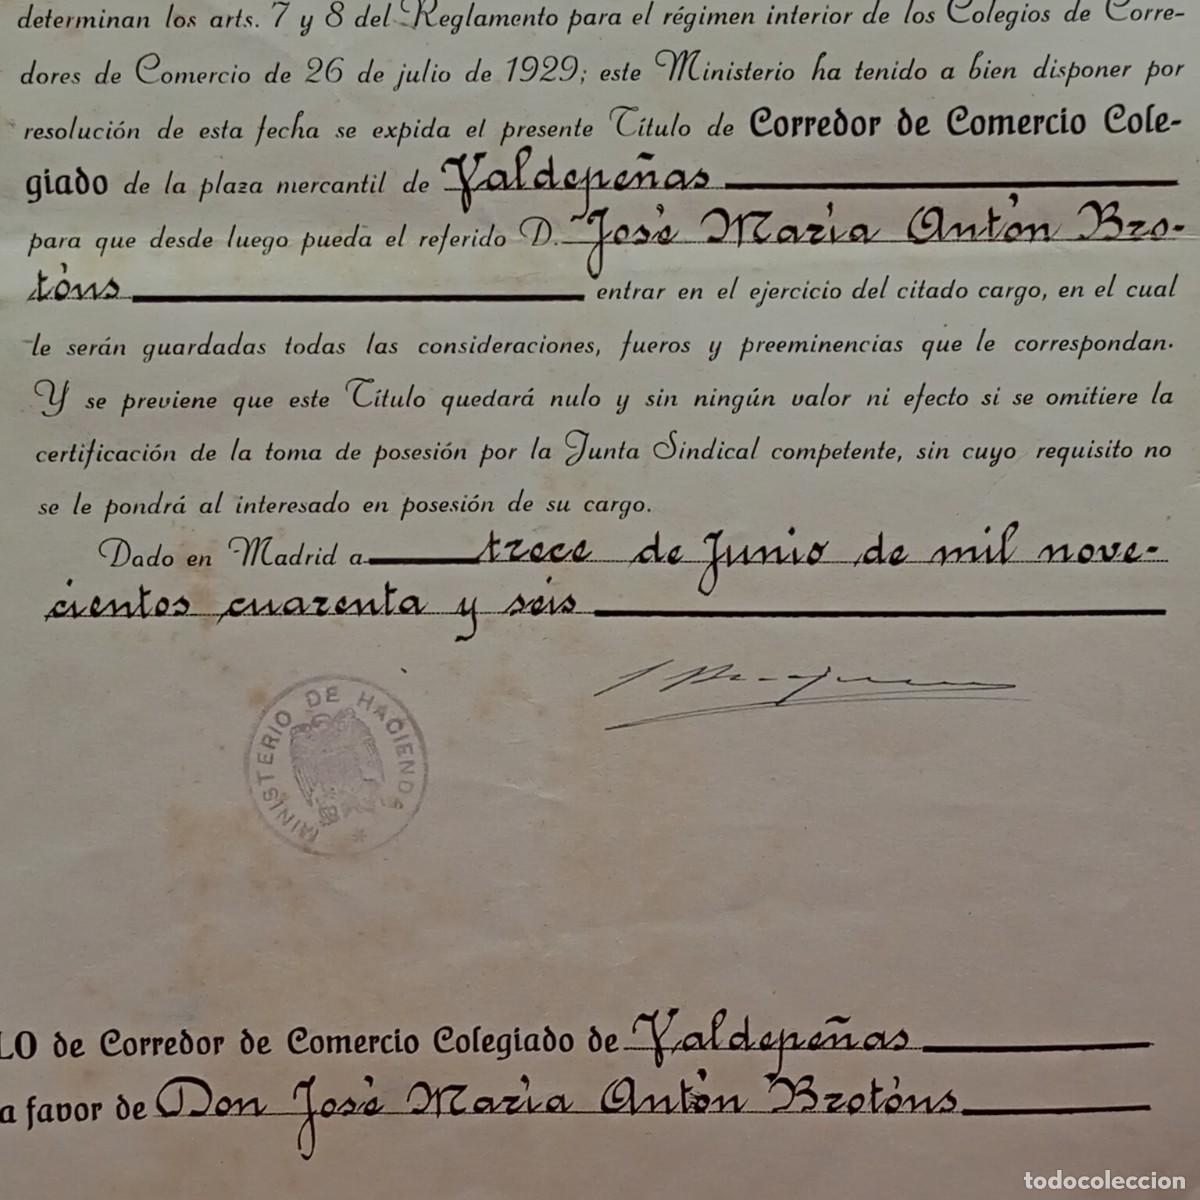 determinan los arts. 7 y 8 del Reglamento para el régimen interior de los Colegios de Corre-
dores de Comercio de 26 de julio de 1929; este Ministerio ha tenido a bien disponer por
resolución de esta fecha se expida el presente Título de Corredor de Comercio Cole-
giado de la plaza mercantil de Valdepeñas
para que desde luego pueda el referido D. José María Antón Bro-
tóns entrar en el ejercicio del citado cargo, en el cual
le serán guardadas todas las consideraciones, fueros y preeminencias que le correspondan.
Y se previene que este Título quedará nulo y sin ningún valor ni efecto si se omitiere la
certificación de la toma de posesión por la Junta Sindical competente, sin cuyo requisito no
se le pondrá al interesado en posesión de su cargo.
Dado en Madrid a trece de Junio de mil nove-
cientos cuarenta y seis
MINISTERIO DE HACIENDA
LO de Corredor de Comercio Colegiado de Valdepeñas
a favor de Don José María Antón Brotóns
todocoleccion